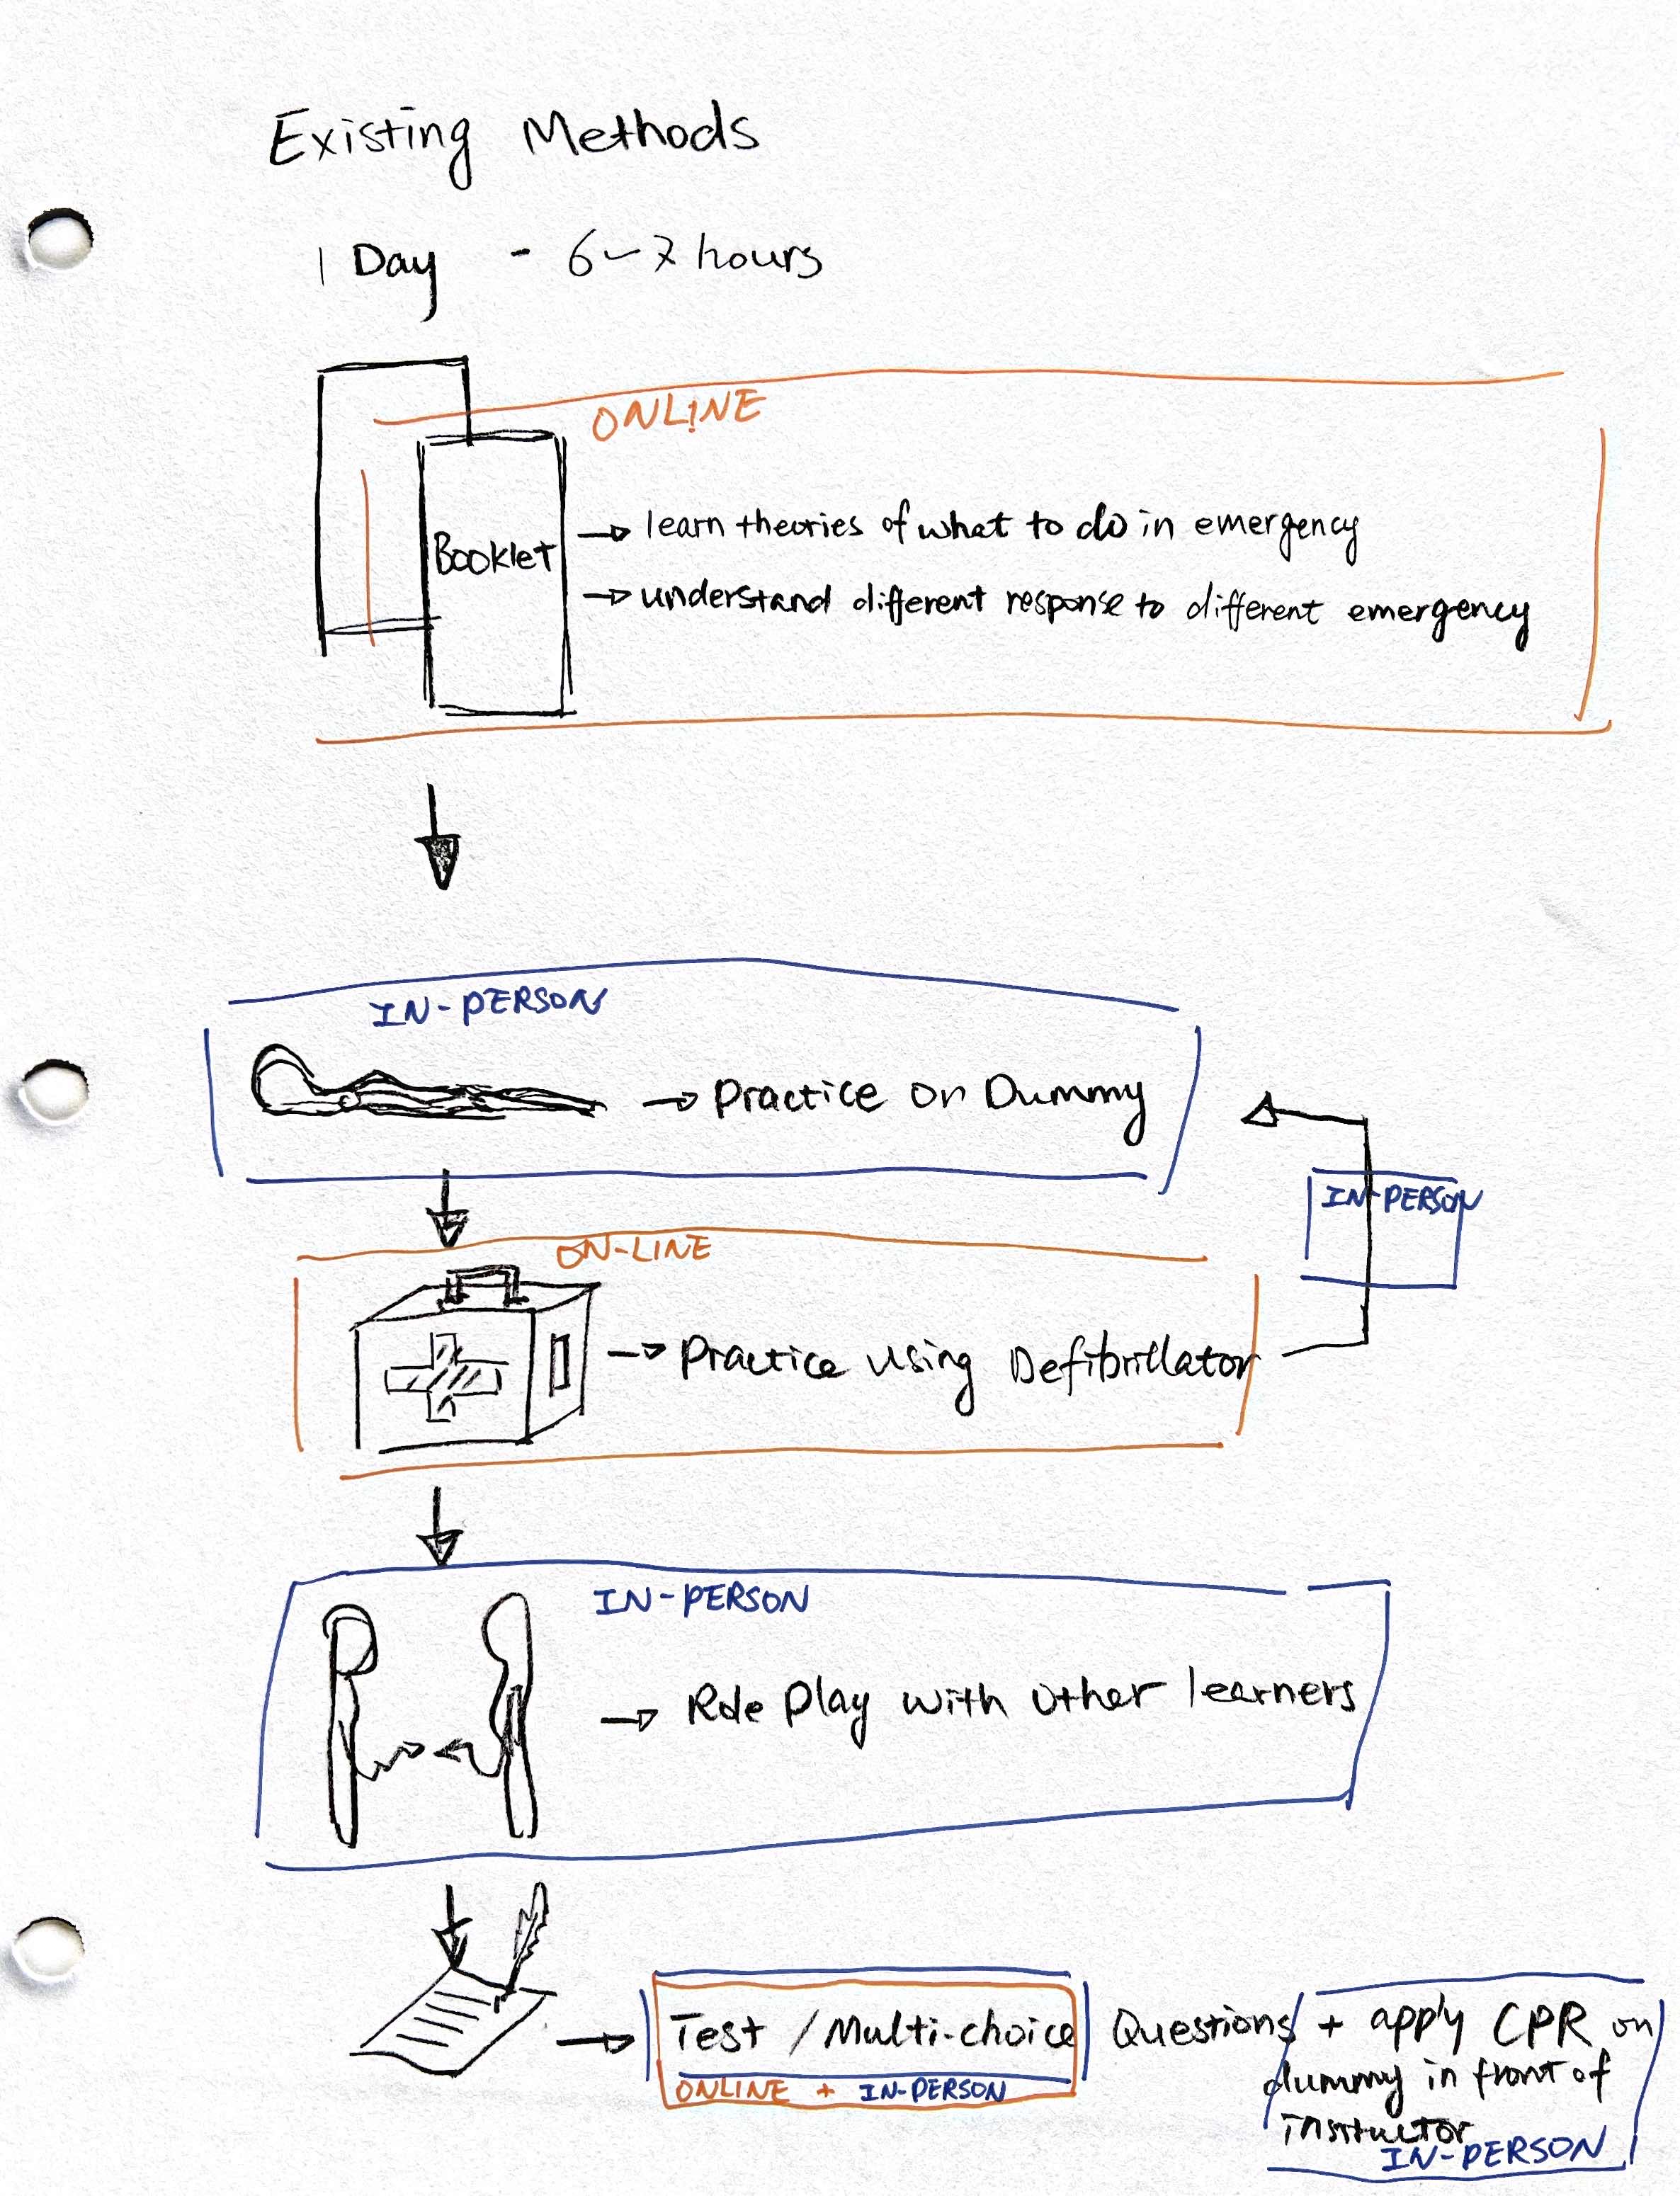 Existing Methods
1 Day - 6~7 hours
ONLINE
Booklet
learn theories of what to do in emergency
understand different response to different emergency
IN-PERSON
Practice on Dummy
IN-PERSON
ON-LINE
Practice using Defibrillator
IN-PERSON
Role Play with other learners
Test / Multi-choice Questions + apply CPR on
dummy in front of
instructor
ONLINE + IN-PERSON
IN-PERSON